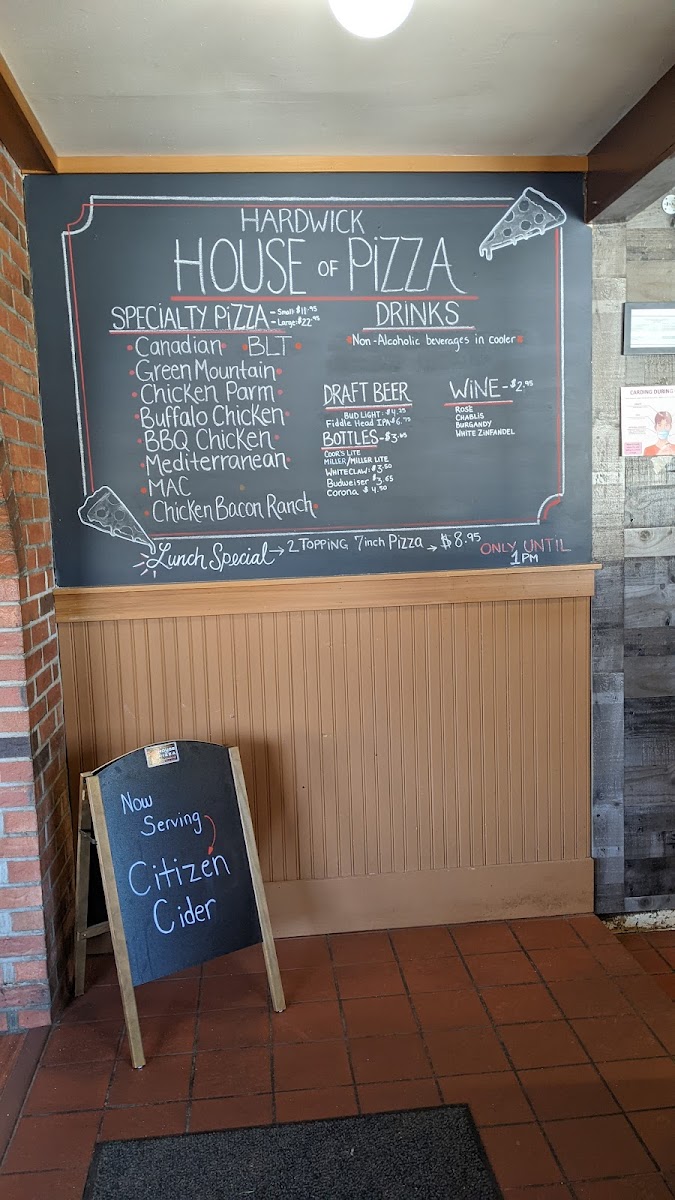 HARDWICK
HOUSE OF PiZZA
SPECIALTY PiZZA - Small $11.95
- Large: $22.95
Canadian BLT
Green Mountain
Chicken Parm
Buffalo Chicken
BBQ Chicken
Mediterranean
MAC
Chicken Bacon Ranch
DRINKS
Non-Alcoholic beverages in cooler
DRAFT BEER
BUD LIGHT: $4.25
Fiddle Head IPA $6.75
BOTTLES - $3.05
COOR'S LITE
MILLER/MILLER LITE
WHITE CLAW: $3.50
Budweiser $3.65
Corona $4.50
WiNE - $2.95
ROSE
CHABLIS
BURGANDY
WHITE ZINFANDEL
Lunch Special → 2 TOPPING 7inch Pizza → $8.95 ONLY UNTIL
1PM
Now
Serving
Citizen
Cider